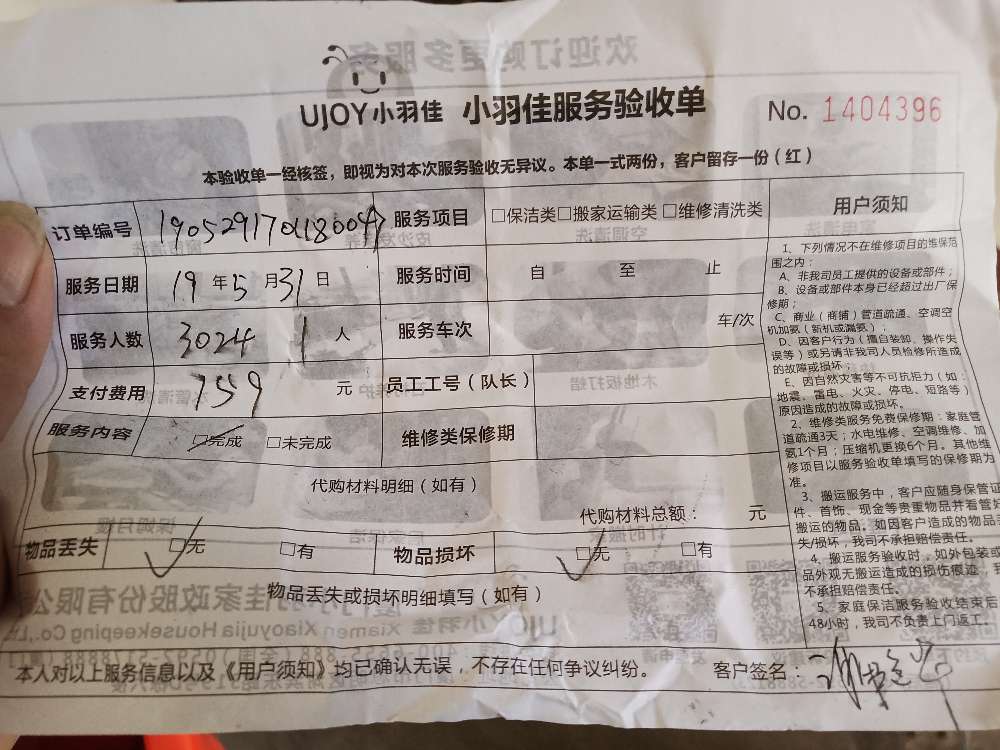 UJOY小羽佳 小羽佳服务验收单 No. 1404396
本验收单一经核签，即视为对本次服务验收无异议。本单一式两份，客户留存一份（红）
订单编号 服务项目 □保洁类□搬家运输类□维修清洗类
服务日期 19年5月31日 服务时间 自 至 止
服务人数 3024 1人 服务车次 车/次
支付费用 759 元 员工工号（队长）
服务内容 □完成 □未完成 维修类保修期
代购材料明细（如有）
代购材料总额： 元
物品丢失 □无 □有 物品损坏 □无 □有
物品丢失或损坏明细填写（如有）
本人对以上服务信息以及《用户须知》均已确认无误，不存在任何争议纠纷。 客户签名：
用户须知
1、下列情况不在维修项目的维保范
围之内：
A、非我司员工提供的设备或部件；
B、设备或部件本身已经超过出厂保
修期；
C、商业（商铺）管道疏通、空调空
机加氨（新机或漏氨）；
D、因客户行为（擅自装卸、操作失
误等）或另请非我司人员检修所造成
的故障或损坏；
E、因自然灾害等不可抗拒力（如：
地震、雷电、火灾、停电、短路等）
原因造成的故障或损坏。
2、维修类服务免费保修期：家庭管
道疏通3天；水电维修、空调维修、加
氨1个月；压缩机更换6个月。其他维
修项目以服务验收单填写的保修期为
准。
3、搬运服务中，客户应随身保管证
件、首饰、现金等贵重物品并看管好
搬运的物品。如因客户造成的物品丢
失/损坏，我司不承担赔偿责任。
4、搬运服务验收时，如外包装或
品外观无搬运造成的损伤痕迹，我
不承担赔偿责任。
5、家庭保洁服务验收结束后
48小时，我司不负责上门返工。